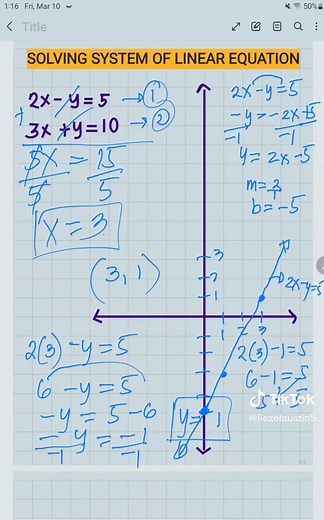 1:16 Fri, Mar 10
50%
Title
SOLVING SYSTEM OF LINEAR EQUATION
2x - y = 5 → ①
+
3x + y = 10 → ②
5x = 15
5 5
x = 3
(3, 1)
2(3) - y = 5
6 - y = 5
-y = 5 - 6
-y = -1
-1 -1
y = 1
2x - y = 5
-y = -2x + 5
-1 -1
y = 2x - 5
m = 2/1
b = -5
3
2
1
1
3
2x - y = 5
2(3) - 1 = 5
6 - 1 = 5
5 = 5
TikTok